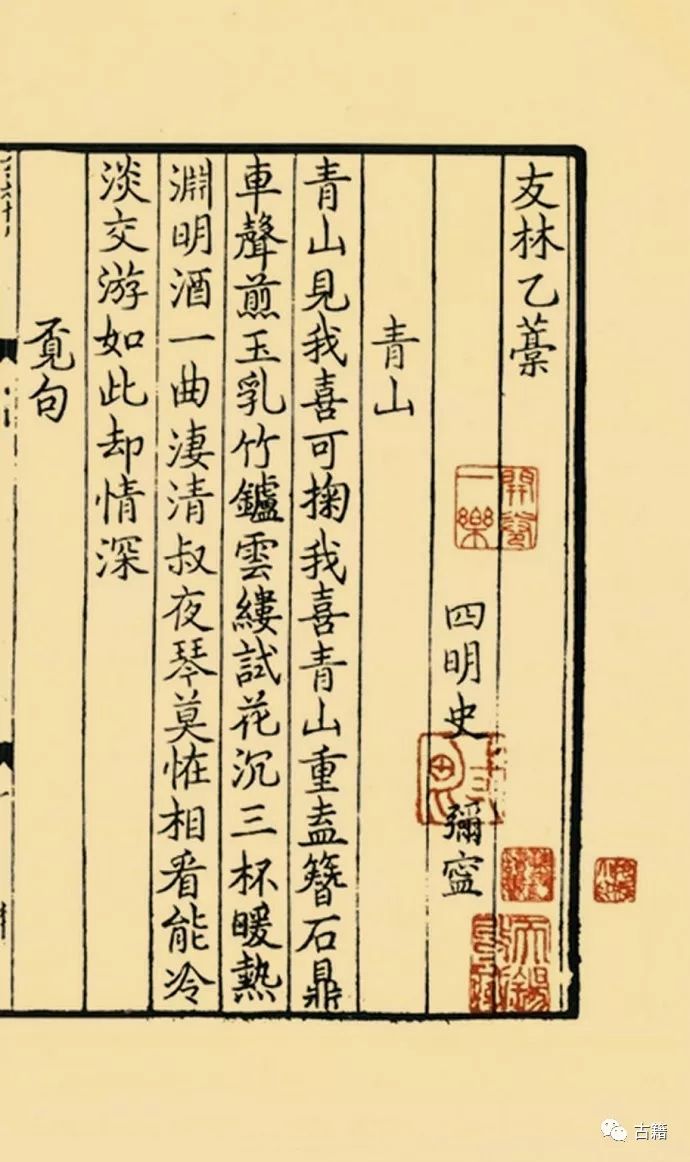 友林乙藁
四明史 彌寧
青山
青山見我喜可掬我喜青山重盍簪石鼎
車聲煎玉乳竹鑪雲縷試花沉三杯暖熱
淵明酒一曲淒清叔夜琴莫恠相看能冷
淡交游如此却情深
覔句
一樂
古籍